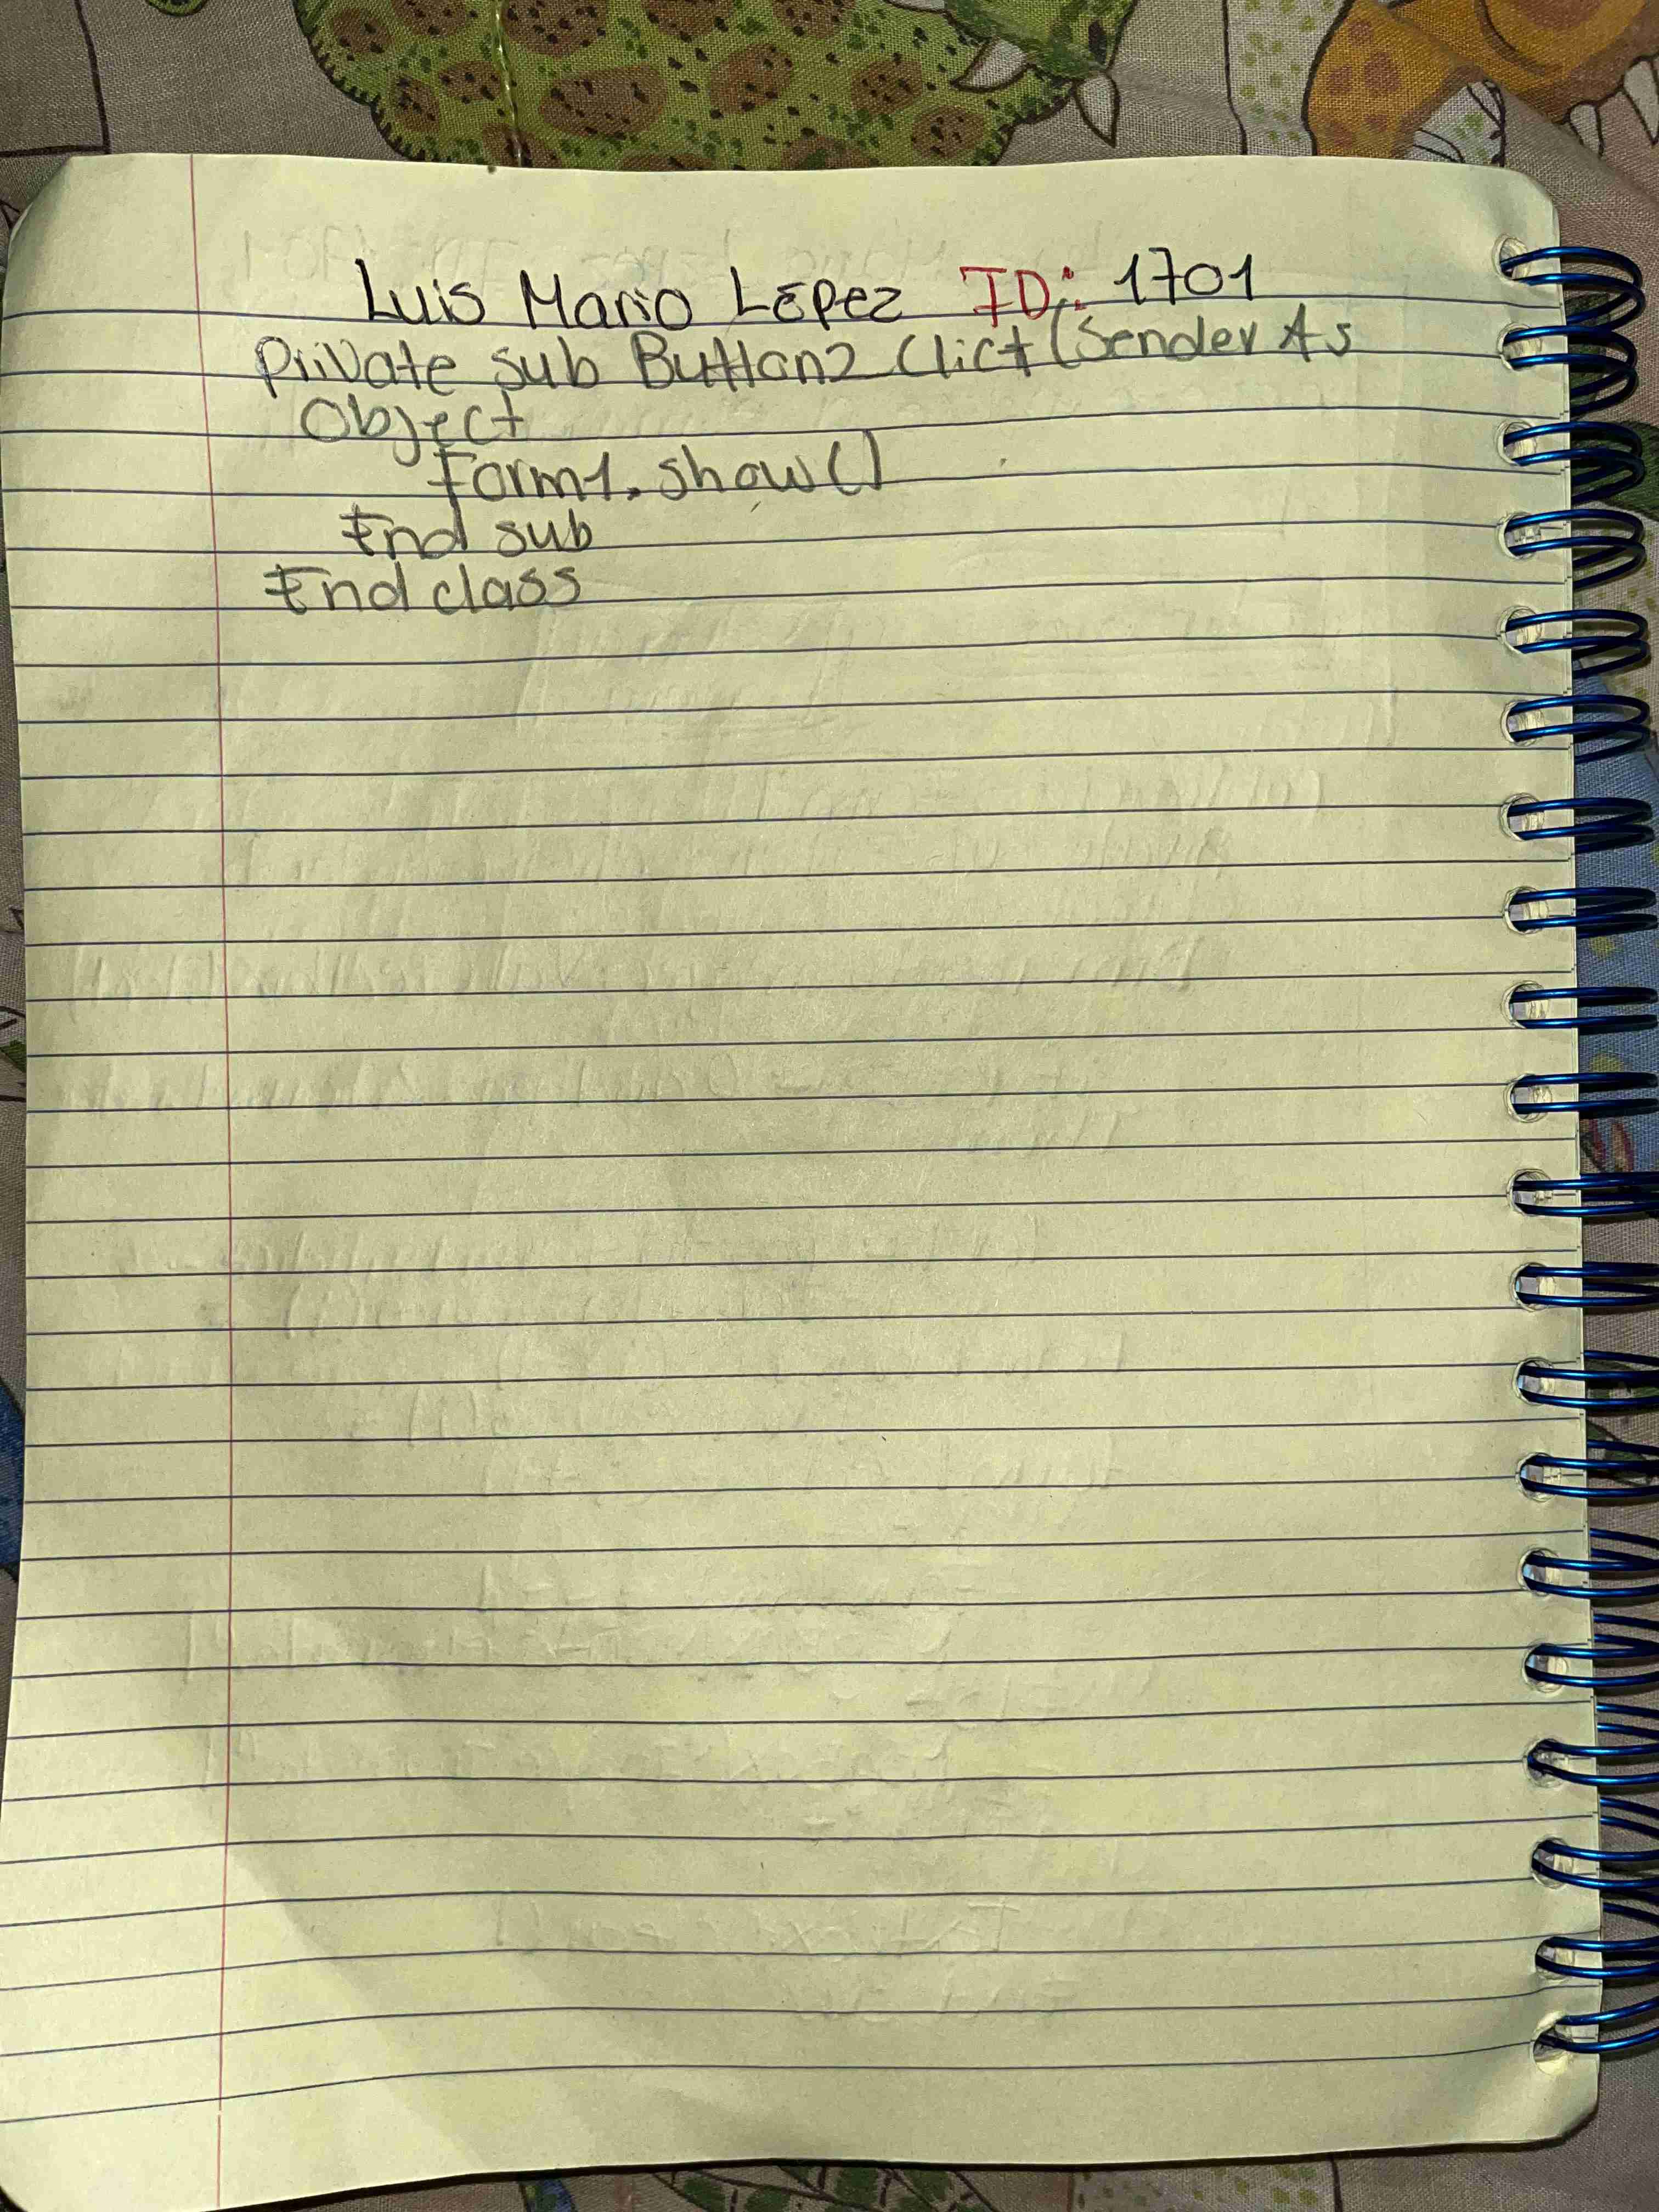 Luis Mario López ID: 1701
Private sub Button2 Click (Sender As
Object
Form1.show()
End sub
End class